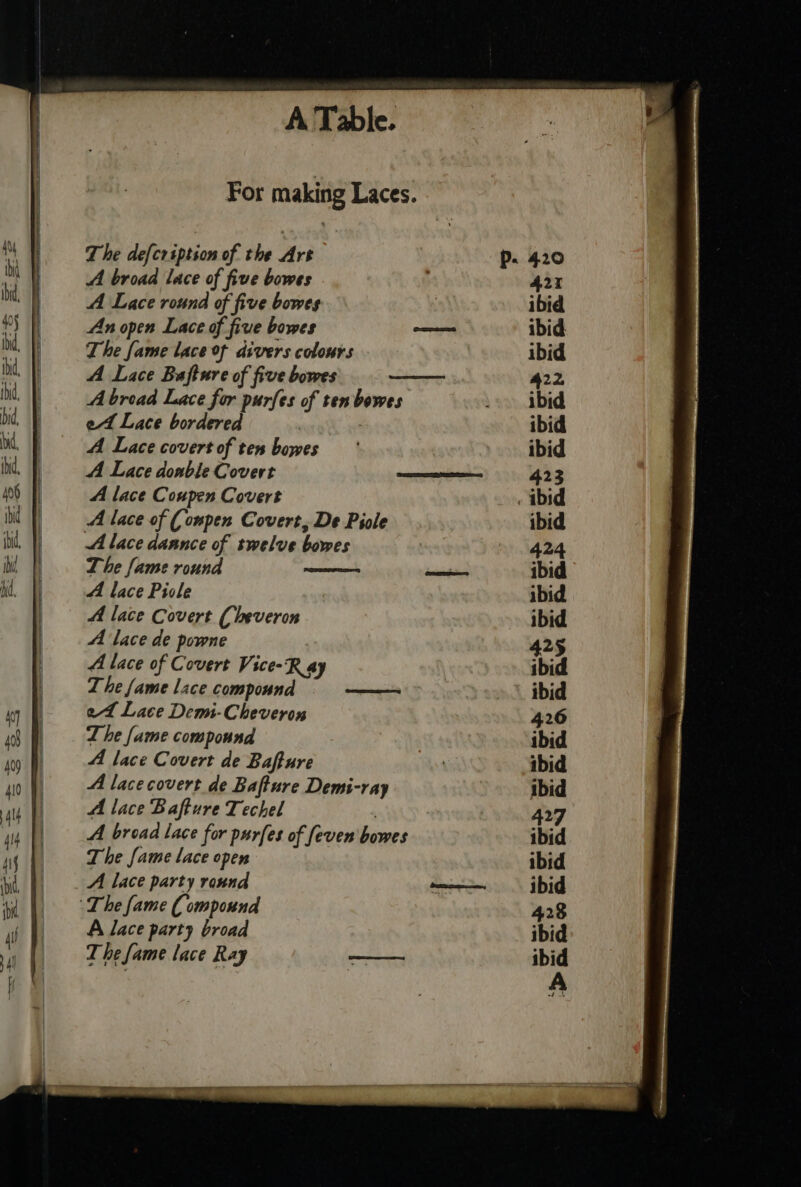 A Table.
For making Laces.
The deſcription of the Art p. 420
A broad lace of five bowes 421
A Lace round of five bowes ibid
An open Lace of five bowes —— ibid
The ſame lace of divers colours ibid
A Lace Baſture of five bowes —— 422
A broad Lace for purſes of ten bowes ibid
A Lace bordered ibid
A Lace covert of ten bowes ibid
A Lace double Covert —— 423
A lace Coupen Covert ibid
A lace of Compen Covert, De Piole ibid
A lace daunce of twelve bowes 424
The ſame round —— —— ibid
A lace Piole ibid
A lace Covert Cheveron ibid
A lace de powne 425
A lace of Covert Vice-Ray ibid
The ſame lace compound —— ibid
A Lace Demi-Cheveron 426
The ſame compound ibid
A lace Covert de Baſture ibid
A lace covert de Baſture Demi-ray ibid
A lace Baſture Techel 427
A broad lace for purſes of ſeven bowes ibid
The ſame lace open ibid
A lace party round —— ibid
The ſame Compound 428
A lace party broad ibid
The ſame lace Ray —— ibid
A